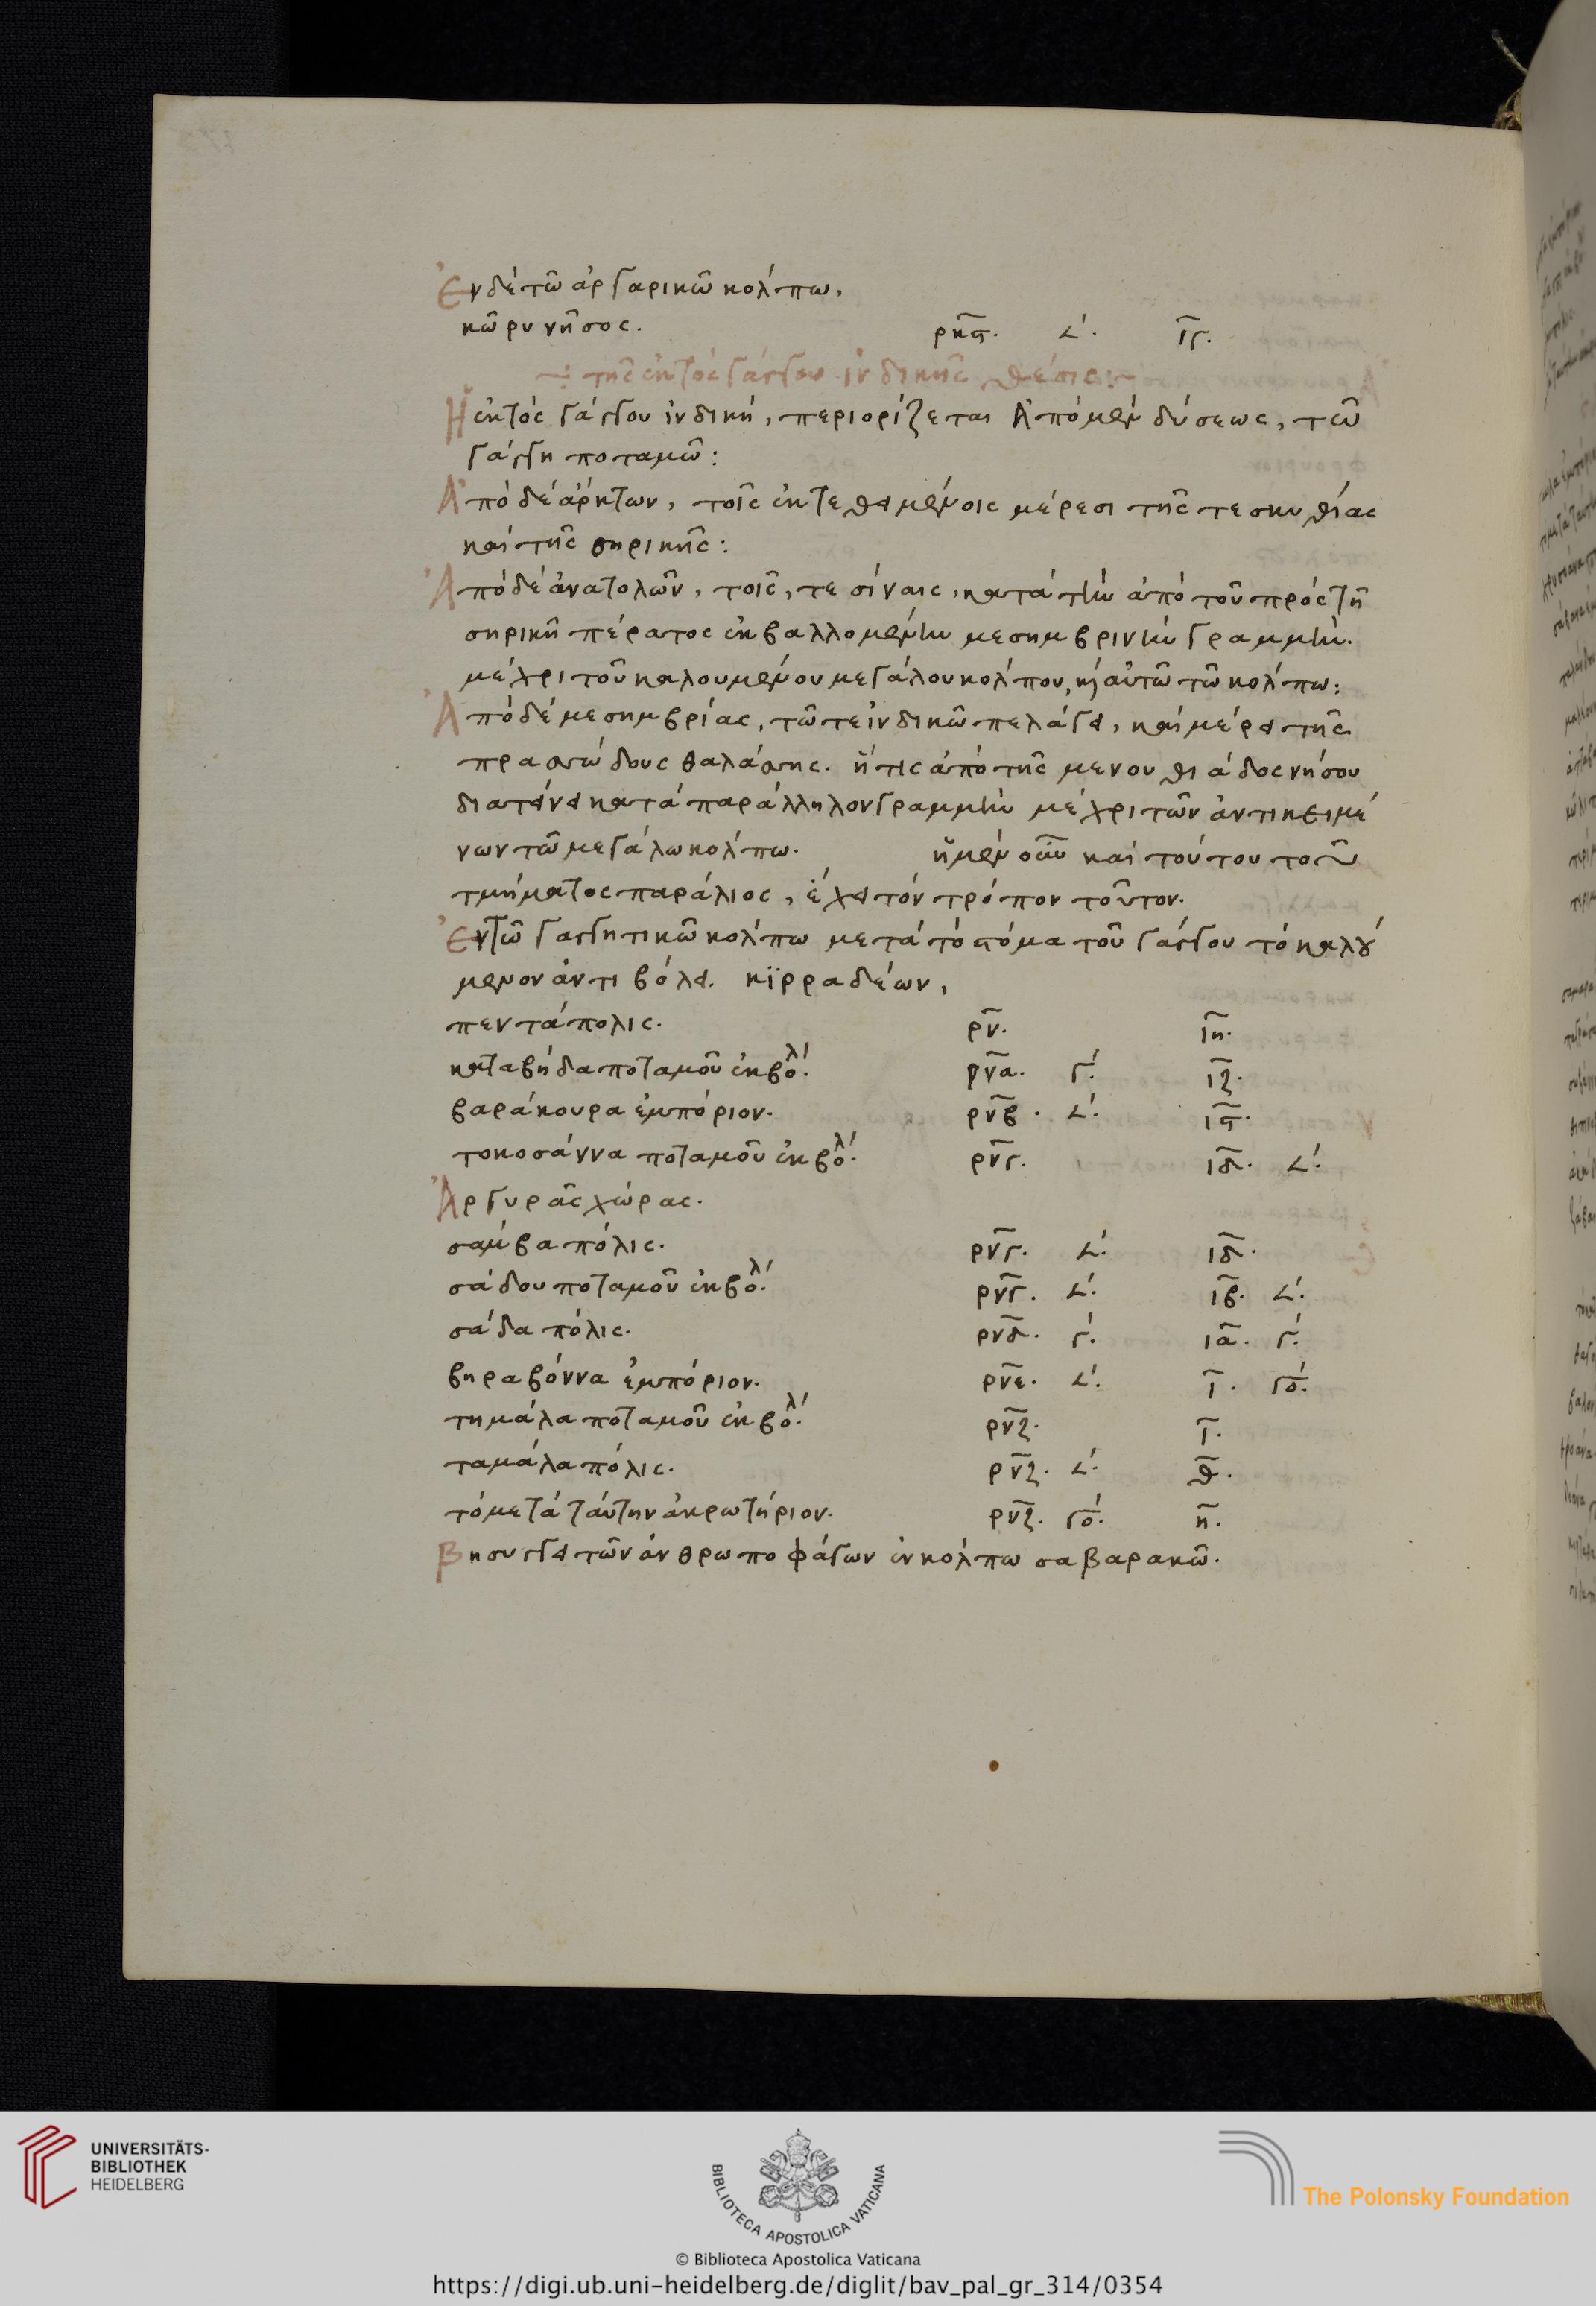 Ἐν δὲ τῶ ἀργαρικῶ κόλπω,
κῶρυ νῆσος. ρκϛ. 𐅵. ιγ.
τῆς ἐκτὸς γάγγου ἰνδικῆς θέσις
Ἡ ἐκτὸς γάγγου ἰνδική, περιορίζεται ἀπὸ μὲν δύσεως, τῶ
γάγγη ποταμῶ:
Ἀπὸ δὲ ἄρκτων, τοῖς ἐκτεθειμένοις μέρεσι τῆς τε σκυθίας
καὶ τῆς σηρικῆς:
Ἀπὸ δὲ ἀνατολῶν, τοῖς, τε σίναις, κατὰ τὴν ἀπὸ τοῦ πρὸς τῆ
σηρικῆ πέρατος ἐκβαλλομένην μεσημβρινὴν γραμμὴν.
μέχρι τοῦ καλουμένου μεγάλου κόλπου, κὶ αὐτῶ τῶ κόλπω:
Ἀπὸ δὲ μεσημβρίας, τῶ τε ἰνδικῶ πελάγει, καὶ μέρει τῆς
πρασώδους θαλάσσης. ἥτις ἀπὸ τῆς μενουθιάδος νήσου
διατείνει κατὰ παράλληλον γραμμὴν μέχρι τῶν ἀντικειμέ
νων τῶ μεγάλω κόλπω. ἡ μὲν οὖν καὶ τούτου τοῦ
τμήματος παράλιος, ἔχει τὸν τρόπον τοῦτον.
Ἐν τῶ γαγγητικῶ κόλπω μετὰ τὸ στόμα τοῦ γάγγου τὸ καλού
μενον ἀντιβόλει. κϊρραδέων,
πεντάπολις. ρν. ιη.
καταβήδα ποταμοῦ ἐκβολ. ρνα. γ. ιζ.
βαράκουρα ἐμπόριον. ρνβ. 𐅵. ιϛ.
τοκοσάννα ποταμοῦ ἐκβολ. ρνγ. ιδ. 𐅵.
Ἀργυρᾶς χώρας.
σαμβα πόλις. ρνγ. 𐅵. ιδ.
σάδου ποταμοῦ ἐκβολ. ρνγ. 𐅵. ιβ. 𐅵.
σάδα πόλις. ρνδ. γ. ια. γ.
βηραβόννα ἐμπόριον. ρνε. 𐅵. ι. γο.
τημάλα ποταμοῦ ἐκβολ. ρνζ. ι.
ταμάλα πόλις. ρνζ. 𐅵. θ.
τὸ μετὰ ταύτην ἀκρωτήριον. ρνζ. γο. η.
Βησυγγει τῶν ἀνθρωποφάγων ἐν κόλπω σαβαρακῶ.
UNIVERSITÄTS-
BIBLIOTHEK
HEIDELBERG
BIBLIOTECA APOSTOLICA VATICANA
The Polonsky Foundation
© Biblioteca Apostolica Vaticana
https://digi.ub.uni-heidelberg.de/diglit/bav_pal_gr_314/0354